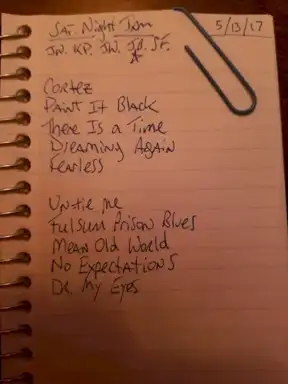 Sat. Night Jam
5/13/17
JW. KP. JW. JD. SF.
Cortez
Paint It Black
There Is a Time
Dreaming Again
Fearless
Untie me
Fulsum Prison Blues
Mean Old World
No Expectations
Dr. My Eyes